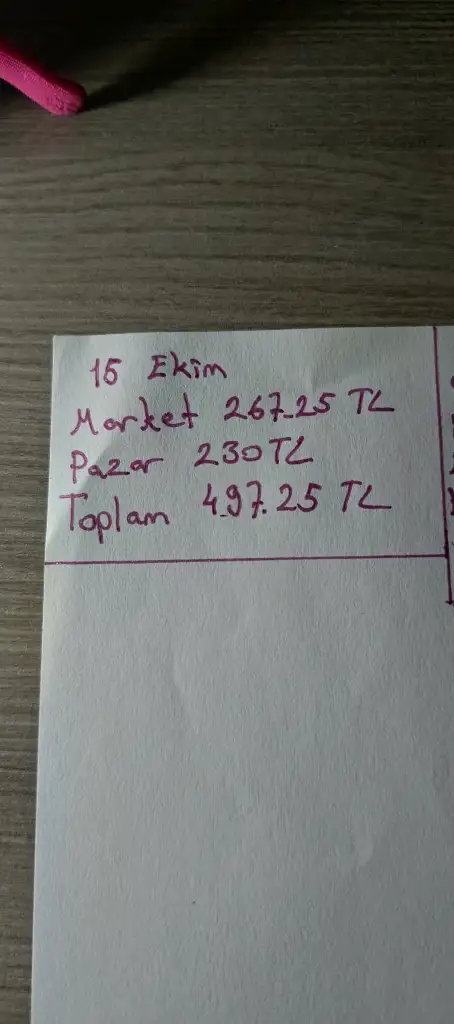 15 Ekim
Market 267.25 TL
Pazar 230 TL
Toplam 497.25 TL